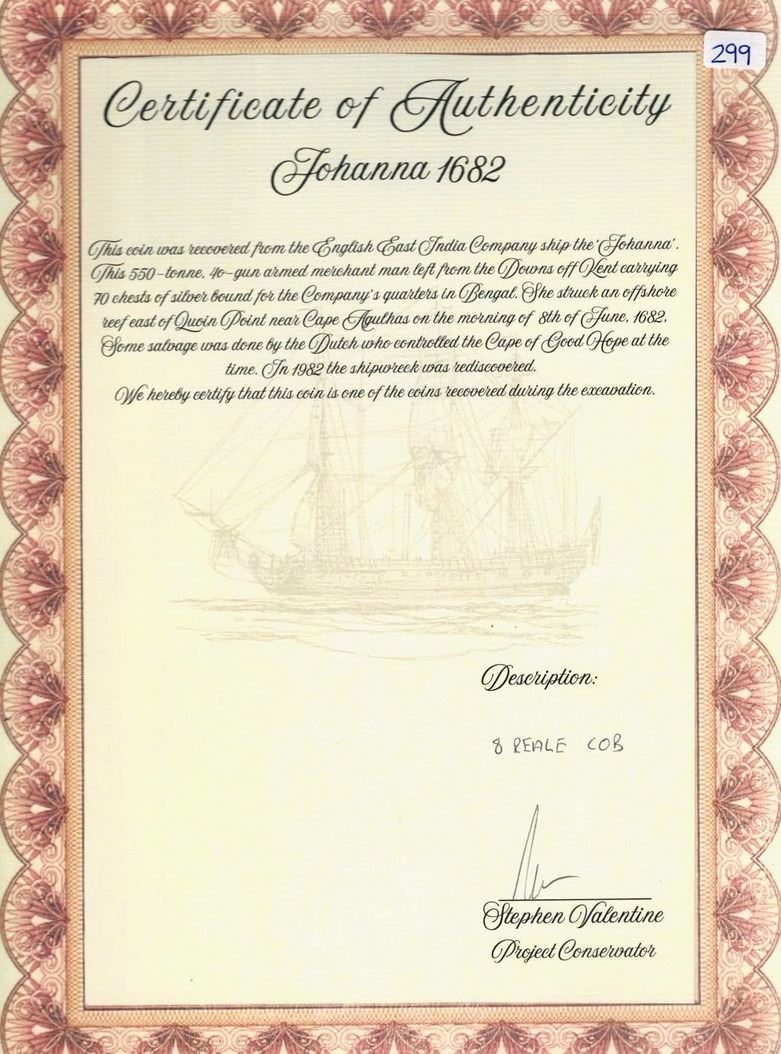 299
Certificate of Authenticity
Johanna 1682
This coin was recovered from the English East India Company ship the 'Johanna'.
This 550-tonne, 40-gun armed merchant man left from the Downs off Kent carrying
70 chests of silver bound for the Company's quarters in Bengal. She struck an offshore
reef east of Quoin Point near Cape Agulhas on the morning of 8th of June, 1682.
Some salvage was done by the Dutch who controlled the Cape of Good Hope at the
time. In 1982 the shipwreck was rediscovered.
We hereby certify that this coin is one of the coins recovered during the excavation.
Description:
8 REALE COB
Stephen Valentine
Project Conservator